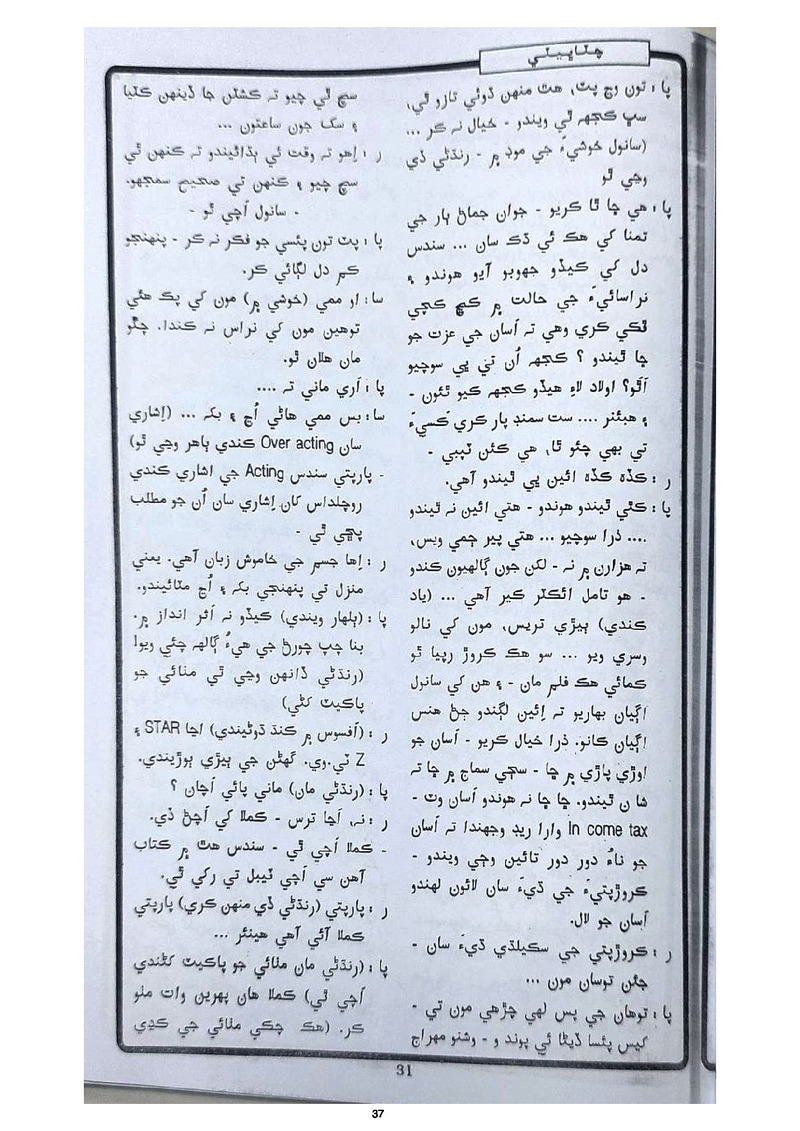 چٽاڀيٽي
پا : تون وڃ پٽ، هٿ منهن ڌوئي تازو ٿي،
سڀ ڪجهه ٿي ويندو - خيال نه ڪر ...
(سانول خوشيءَ جي موڊ ۾ - رنڌڻي ڏي
وڃي ٿو
پا : هي ڇا ٿا ڪريو - جوان جمان ٻار جي
تمنا کي هڪ ئي ڌڪ سان ... سندس
دل کي ڪيڏو جهوٻو آيو هوندو ۽
نراسائيءَ جي حالت ۾ ڪڇ ڪڇي
ڦڪي ڪري وهي ته اَسان جي عزت جو
ڇا ٿيندو ؟ ڪجهه اُن تي ڀي سوچيو
اَٿو؟ اولاد لاءِ هيڏو ڪجهه ڪيو ٿئون -
۽ هينئر .... ست سمنڊ پار ڪري ڪَسيءَ
تي ٻهي چئو ٿا، هي ڪئن ٽپبي -
ر : ڪڏهه ڪڏهه ائين ڀي ٿيندو آهي.
پا : ڪٿي ٿيندو هوندو - هتي ائين نه ٿيندو
.... ذرا سوچيو ... هتي پير ڄمي ويس،
ته هزارن ۾ نه - لکن جون ڳالهيون ڪندو
- هو تامل ائڪٽر ڪير آهي ... (ياد
ڪندي) ٻيڙي تريس، مون کي نالو
وسري ويو ... سو هڪ ڪروڙ رپيا ٿو
ڪمائي هڪ فلم مان - ۽ هن کي سانول
اڳيان بهاريو ته اِئين لڳندو ڄڻ هنس
اڳيان ڪانو. ذرا خيال ڪريو - اَسان جو
اوڙي پاڙي ۾ ڇا - سڄي سماج ۾ ڇا ته
شان ٿيندو. ڇا ڇا نه هوندو اَسان وٽ -
In come tax وارا ريڊ وجهندا ته اَسان
جو ناءُ دور دور تائين وڃي ويندو -
ڪروڙپتيءَ جي ڌيءَ سان لائون لهندو
اَسان جو لال.
ر : ڪروڙپتي جي سڪيلڌي ڌيءَ سان -
جئن توسان مون ...
پا : توهان جي بس لهي چڙهي مون تي -
ڪيس پئسا ڏيڻا ئي پوندو - وشنو مهراج
سچ ئي چيو ته ڪشٽن جا ڏينهن ڪٽيا
۽ سک جون ساعتون ...
ر : اِهو ته وقت ئي ٻڌائيندو ته ڪنهن ئي
سچ چيو ۽ ڪنهن تي صحيح سمجهو.
- سانول اَچي ٿو -
پا : پٽ تون پئسي جو فڪر نه ڪر - پنهنجو
ڪم دل لڳائي ڪر.
سا : او ممي (خوشي ۾) مون کي پڪ هئي
توهين مون کي نراس نه ڪندا. چڱو
مان هلان ٿو.
پا : اَري ماني ته ....
سا : بس ممي هاڻي اُڃ ۽ بکه ... (اِشاري
سان Over acting ڪندي ٻاهر وڃي ٿو)
- پارپتي سندس Acting جي اشاري ڪندي
روچلداس کان اِشاري سان اُن جو مطلب
پڇي ٿي -
ر : اِها جسم جي خاموش زبان آهي. يعني
منزل تي پنهنجي بکه ۽ اُڃ مٽائيندو.
پا : (ٻلهار ويندي) ڪيڏو نه اَثر انداز ۾.
بنا چپ چورڻ جي هيءُ ڳالهه چئي ويو!
(رنڌڻي ڏانهن وڃي ٿي مٺائي جو
پاڪيٽ کڻي)
ر : (اَفسوس ۾ ڪنڌ ڌوڻيندي) اڃا STAR ۽
Z ٽي.وي. گهڻن جي ٻيڙي ٻوڙيندي.
پا : (رنڌڻي مان) ماني پائي اَچان ؟
ر : نہ، اَڃا ترس - ڪملا کي اَچڻ ڏي.
- ڪملا اَچي ٿي - سندس هٿ ۾ ڪتاب
آهن سي اَچي ٽيبل تي رکي ٿي.
ر : پارپتي (رنڌڻي ڏي منهن ڪري) پارپتي
ڪملا آئي آهي هينئر ...
پا : (رنڌڻي مان مٺائي جو پاڪيٽ کڻندي
اَچي ٿي) ڪملا هان پهرين وات مٺو
ڪر. (هڪ چڪي مٺائي جي ڪڍي
31
37